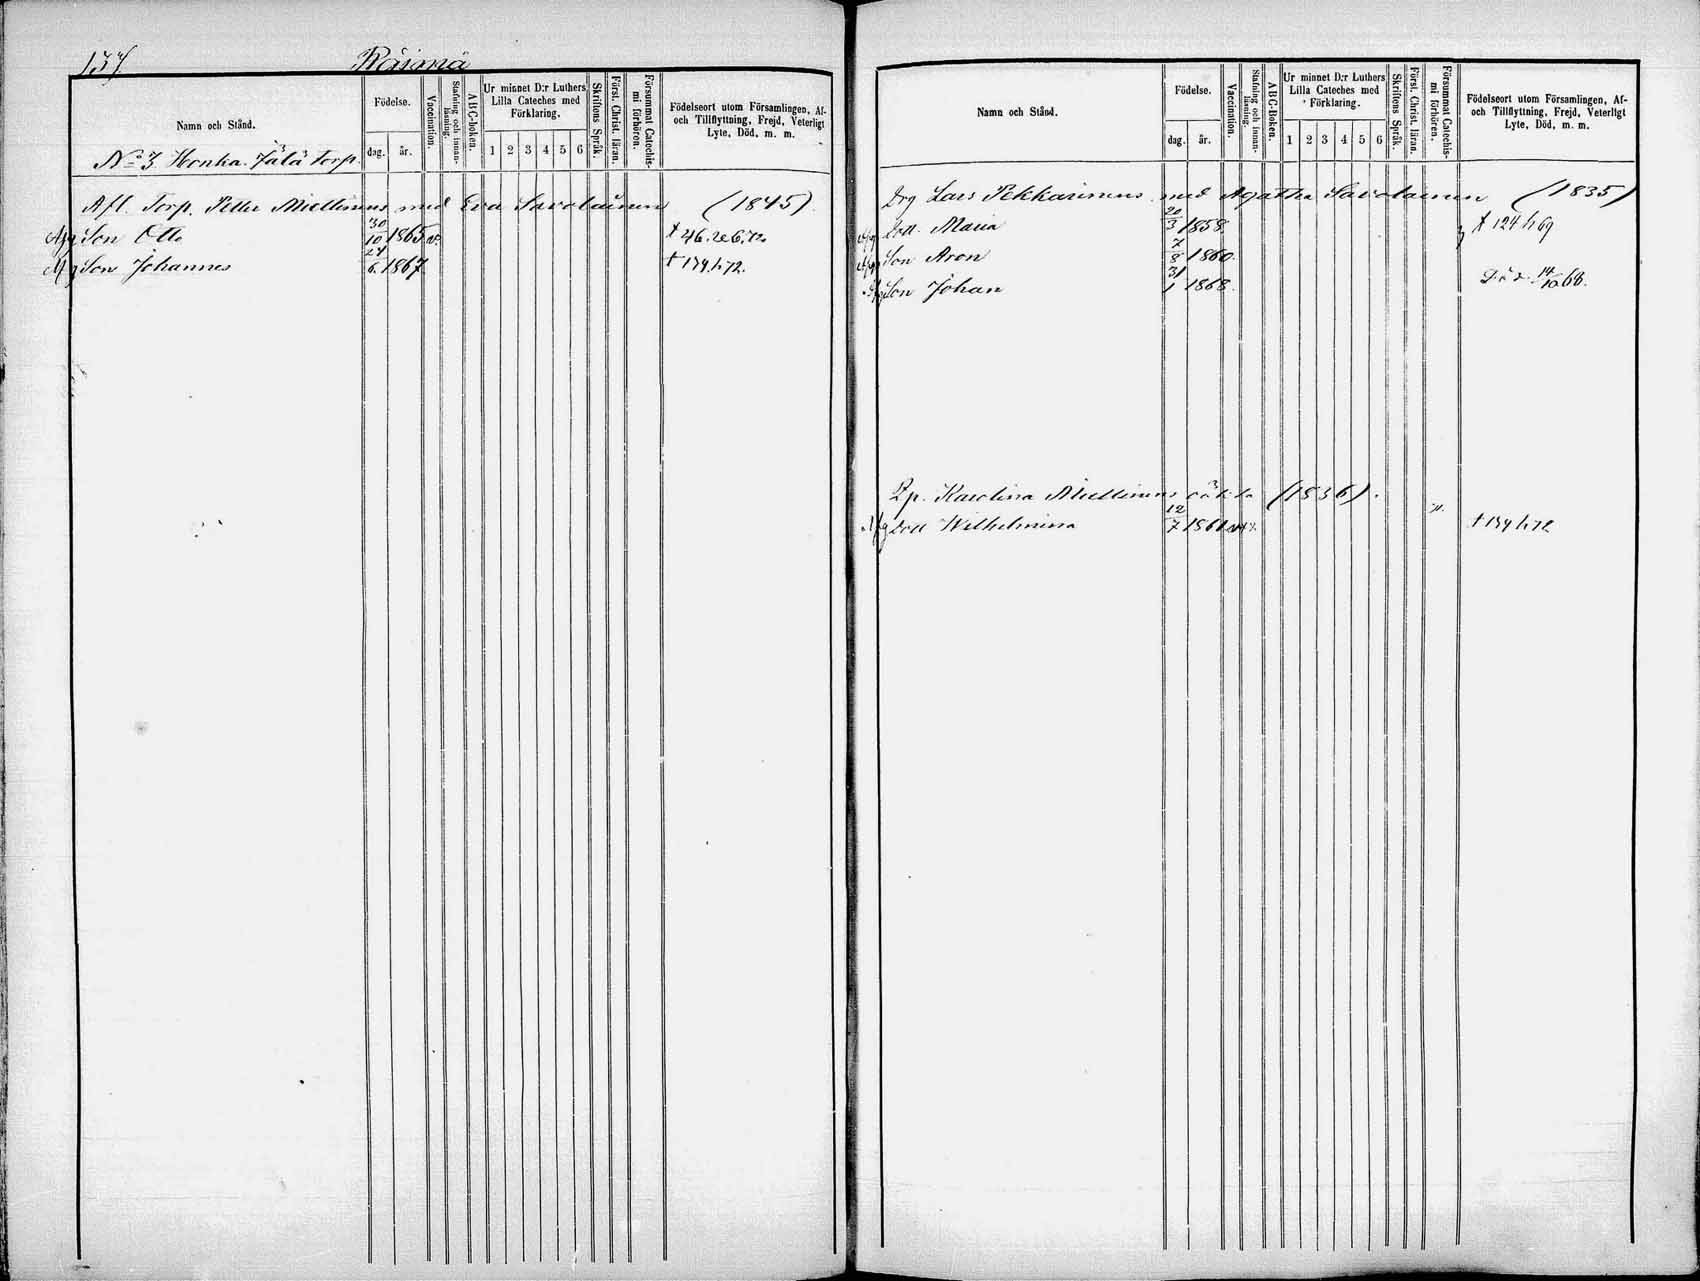 137.
Räimä
Namn och Stånd.
Födelse.
dag.
år.
Vaccination.
Stafning och innan-
läsning.
ABC-boken.
Ur minnet D:r Luthers
Lilla Cateches med
Förklaring.
1 2 3 4 5 6
Skriftens Språk.
Först. Christ. läran.
Försummat Catechis-
mi förhören.
Födelseort utom Församlingen, Af-
och Tillflyttning, Frejd, Veterligt
Lyte, Död, m. m.
No 3 Honka-Jälä Torp.
Afl. Torp. Petter Miettinens med Eva Savolainen (1845).
Son Otto 30/10 1865 v.
Son Johannes 24/6 1867. † 139 h 72.
Namn och Stånd.
Födelse.
dag.
år.
Vaccination.
Stafning och innan-
läsning.
ABC-Boken.
Ur minnet D:r Luthers
Lilla Cateches med
Förklaring.
1 2 3 4 5 6
Skriftens Språk.
Först. Christ. läran.
Försummat Catechis-
mi förhören.
Födelseort utom Församlingen, Af-
och Tillflyttning, Frejd, Veterligt
Lyte, Död, m. m.
Drg Lars Pekkarinens med Agatha Savolainen (1835)
Dott. Maria 20/3 1858. † 124 h 69
Son Aron 7/8 1860.
Son Johan 31/1 1868. Död 14/10 68.
Pp. Karolina Miettinens oäkta (1836).
Dott Wilhelmina 12/7 1861 † 139 h 72